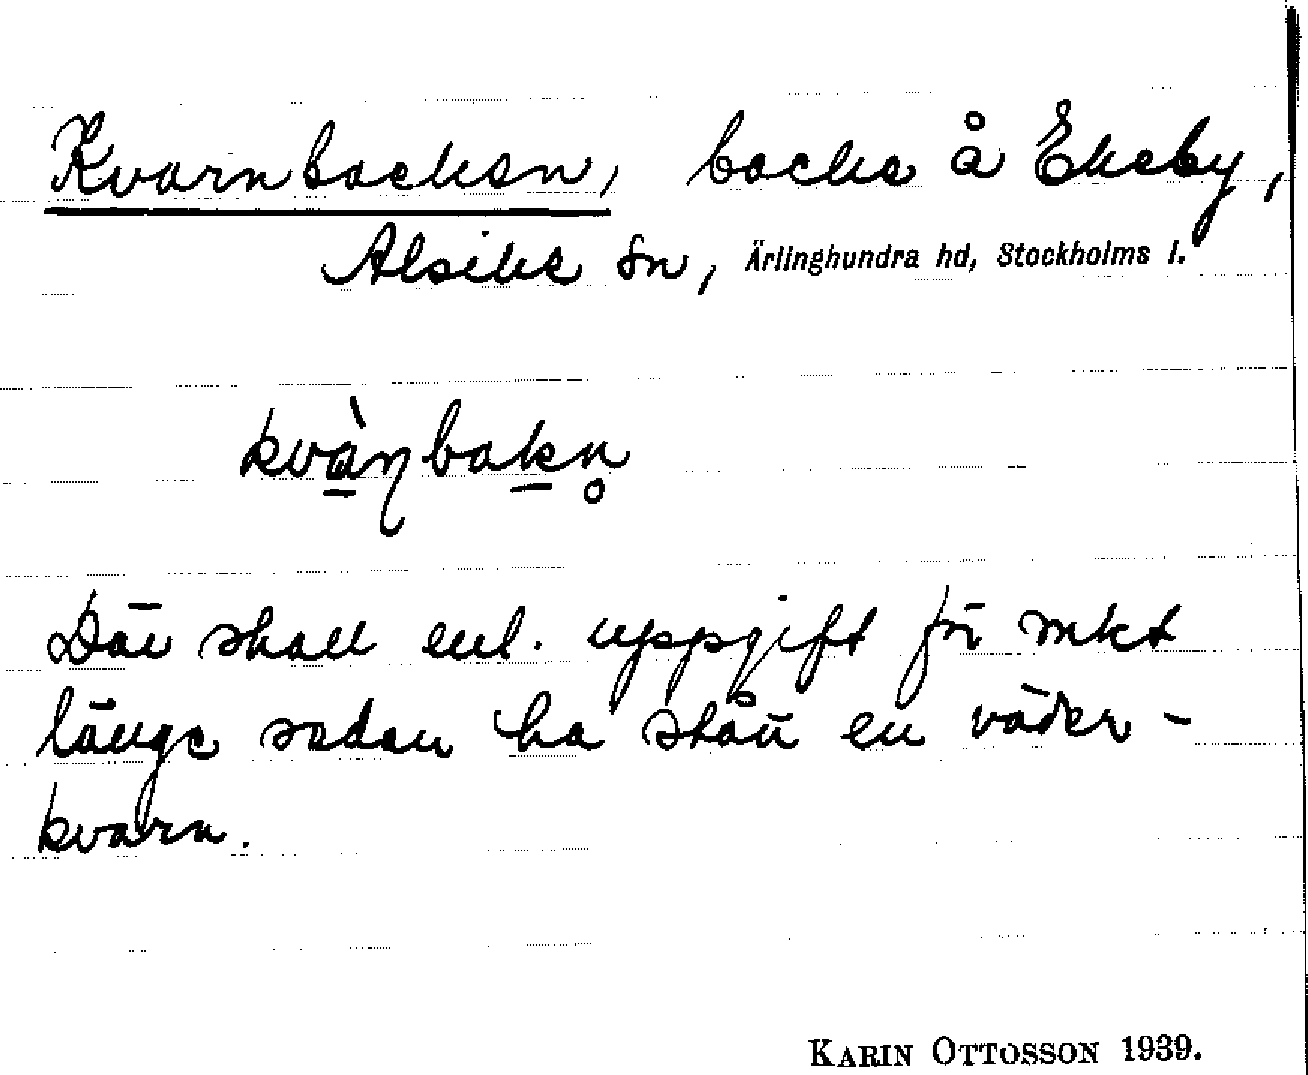 Kvarnbacken, backe å Ekeby,
Alsike sn, Ärlinghundra hd, Stockholms l.
kvà̱ɳbaḵn̥
Där skall enl. uppgift för mkt
länge sedan ha stått en väder-
kvarn.
KARIN OTTOSSON 1939.